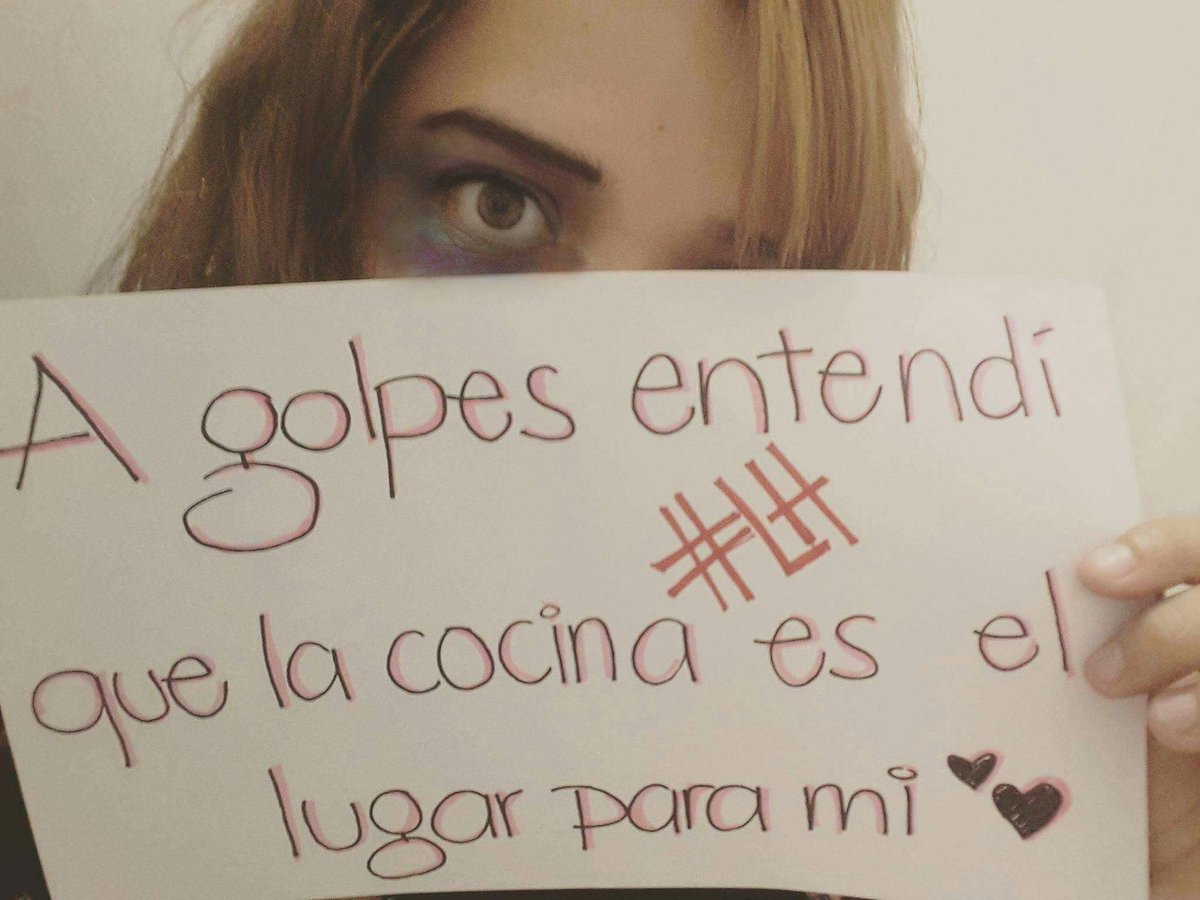 A golpes entendí
#LH
que la cocina es el
lugar para mi